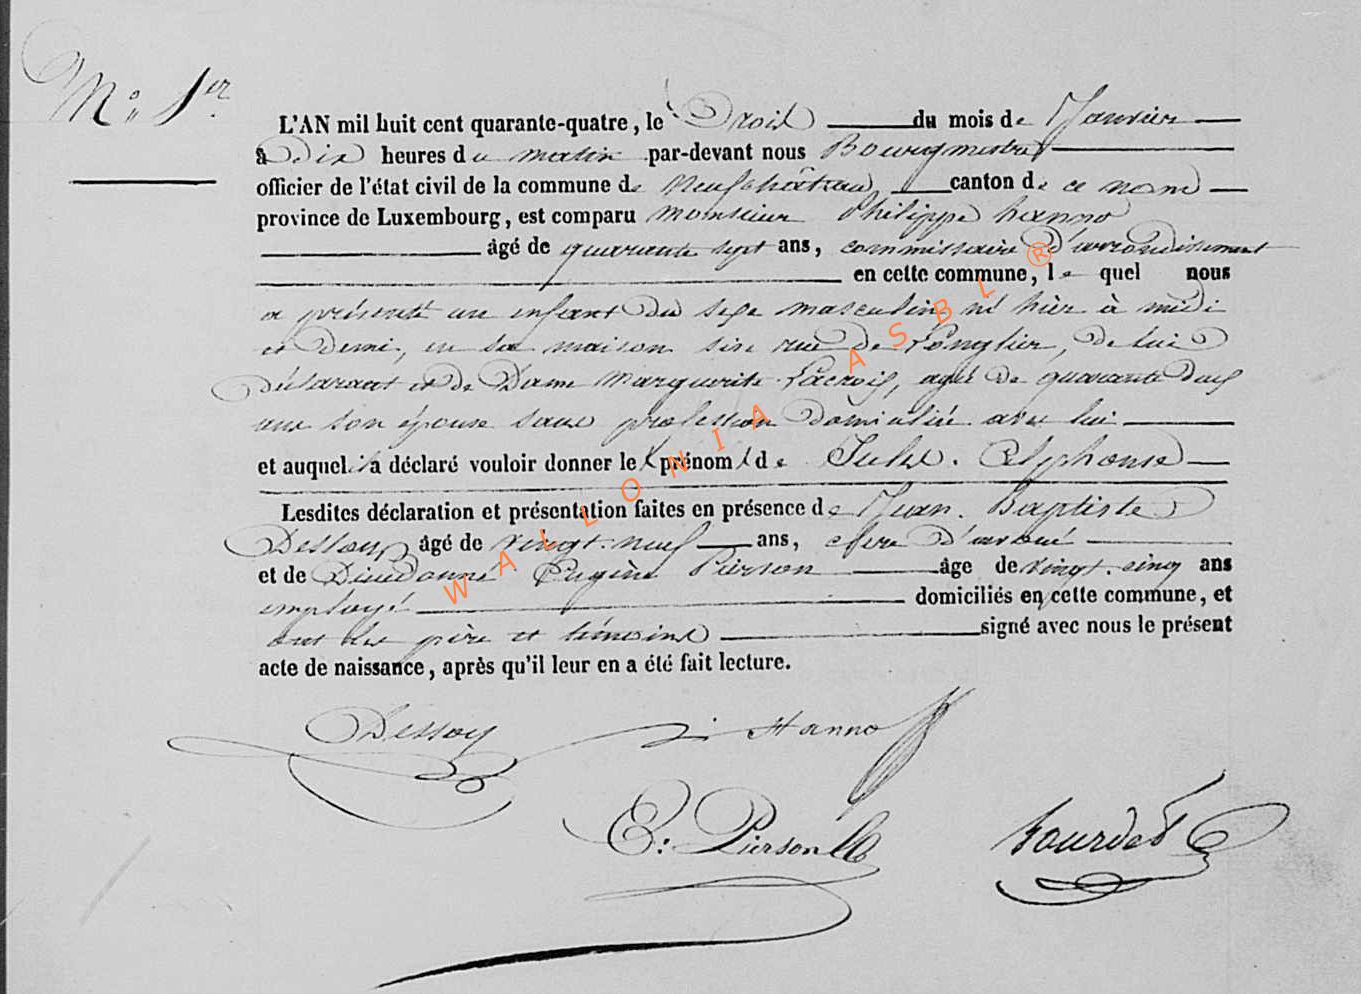 N.º 1.er
L'AN mil huit cent quarante-quatre, le Trois du mois de Janvier
à Dix heures du matin par-devant nous Bourgmestre
officier de l'état civil de la commune de Neufchâteau canton de ce nom
province de Luxembourg, est comparu monsieur Philippe hanno
âgé de quarante sept ans, commissaire d'arrondissement
en cette commune, lequel nous
a présenté un enfant du sexe masculin né hier à midi
et demi, en sa maison sise rue de Longlier, de lui
Déclarant et de Dame Marguerite Lacroix, agée de quarante deux
ans son épouse sans profession domiciliée avec lui
et auquel il a déclaré vouloir donner les prénoms de Jules. Alphonse
Lesdites déclaration et présentation faites en présence de Jean. Baptiste
Dessoy âgé de vingt-neuf ans, clerc d'avoué
et de Dieudonné Eugène Pierson âge de vingt. cinq ans
employé domiciliés en cette commune, et
ont les père et témoins signé avec nous le présent
acte de naissance, après qu'il leur en a été fait lecture.
Dessoy Hanno
E: Pierson Gourdet
WALLONIA ASBL ®